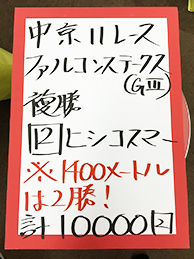 中京11レース
ファルコンステークス
(GⅢ)
複勝
12 ヒシコスマー
※1400メートル
は2勝!
計10000円